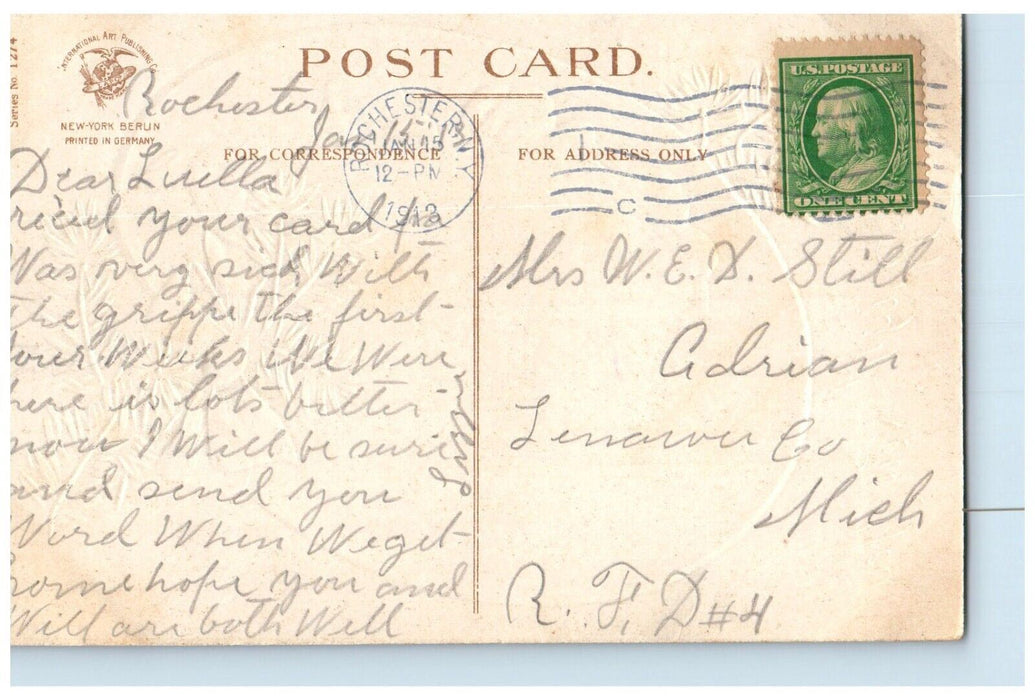 Series No. 1274
INTERNATIONAL ART PUBLISHING CO
NEW-YORK BERLIN
PRINTED IN GERMANY
POST CARD.
FOR CORRESPONDENCE
FOR ADDRESS ONLY
ROCHESTER, N.Y.
JAN 15
12-PM
1913
C
U.S. POSTAGE
ONE CENT
Rochester
Jan 15
Dear Luella
recud your card
Was very sick With
the grippe the first
four Weeks We Were
here is lots better
now I Will be sure
and send you
Word When We get
home hope you and
Will are both Well
Mrs W. E. D. Still
Adrian
Lenawee Co
Mich
R. F. D #4